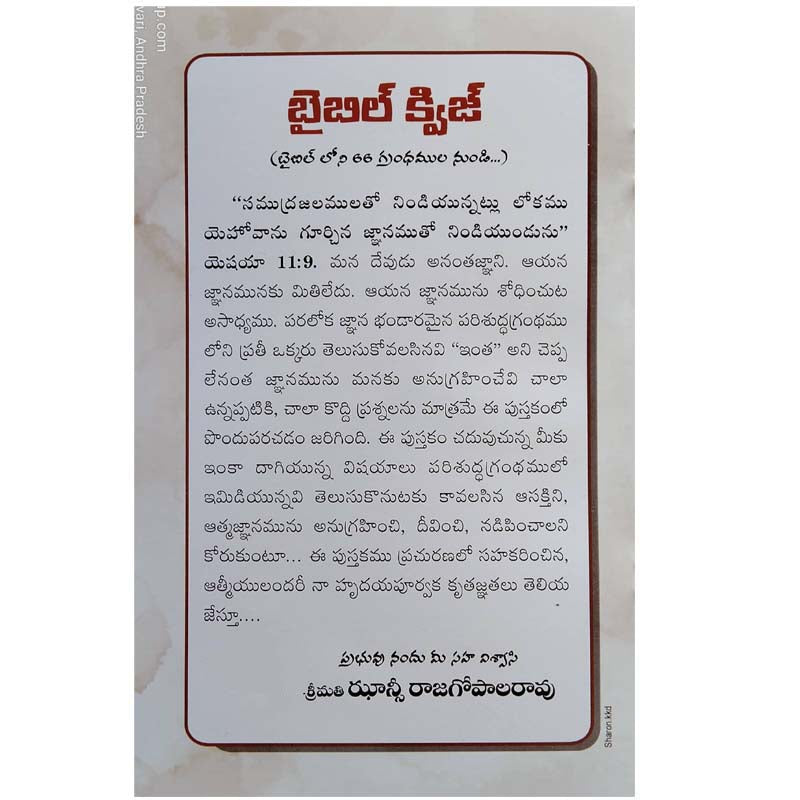 up.com
vari, Andhra Pradesh
బైబిల్ క్విజ్
(బైబిల్ లోని 66 గ్రంథముల నుండి...)
“సముద్రజలములతో నిండియున్నట్లు లోకము
యెహోవాను గూర్చిన జ్ఞానముతో నిండియుండును”
యెషయా 11:9. మన దేవుడు అనంతజ్ఞాని. ఆయన
జ్ఞానమునకు మితిలేదు. ఆయన జ్ఞానమును శోధించుట
అసాధ్యము. పరలోక జ్ఞాన భండారమైన పరిశుద్ధగ్రంథము
లోని ప్రతీ ఒక్కరు తెలుసుకోవలసినవి “ఇంత” అని చెప్ప
లేనంత జ్ఞానమును మనకు అనుగ్రహించేవి చాలా
ఉన్నప్పటికి, చాలా కొద్ది ప్రశ్నలను మాత్రమే ఈ పుస్తకంలో
పొందుపరచడం జరిగింది. ఈ పుస్తకం చదువుచున్న మీకు
ఇంకా దాగియున్న విషయాలు పరిశుద్ధగ్రంథములో
ఇమిడియున్నవి తెలుసుకొనుటకు కావలసిన ఆసక్తిని,
ఆత్మజ్ఞానమును అనుగ్రహించి, దీవించి, నడిపించాలని
కోరుకుంటూ... ఈ పుస్తకము ప్రచురణలో సహకరించిన,
ఆత్మీయులందరీ నా హృదయపూర్వక కృతజ్ఞతలు తెలియ
జేస్తూ....
ప్రభువు నందు మీ సహ విశ్వాసి
శ్రీమతి ఝాన్సీ రాజగోపాలరావు
Sharon.kkd